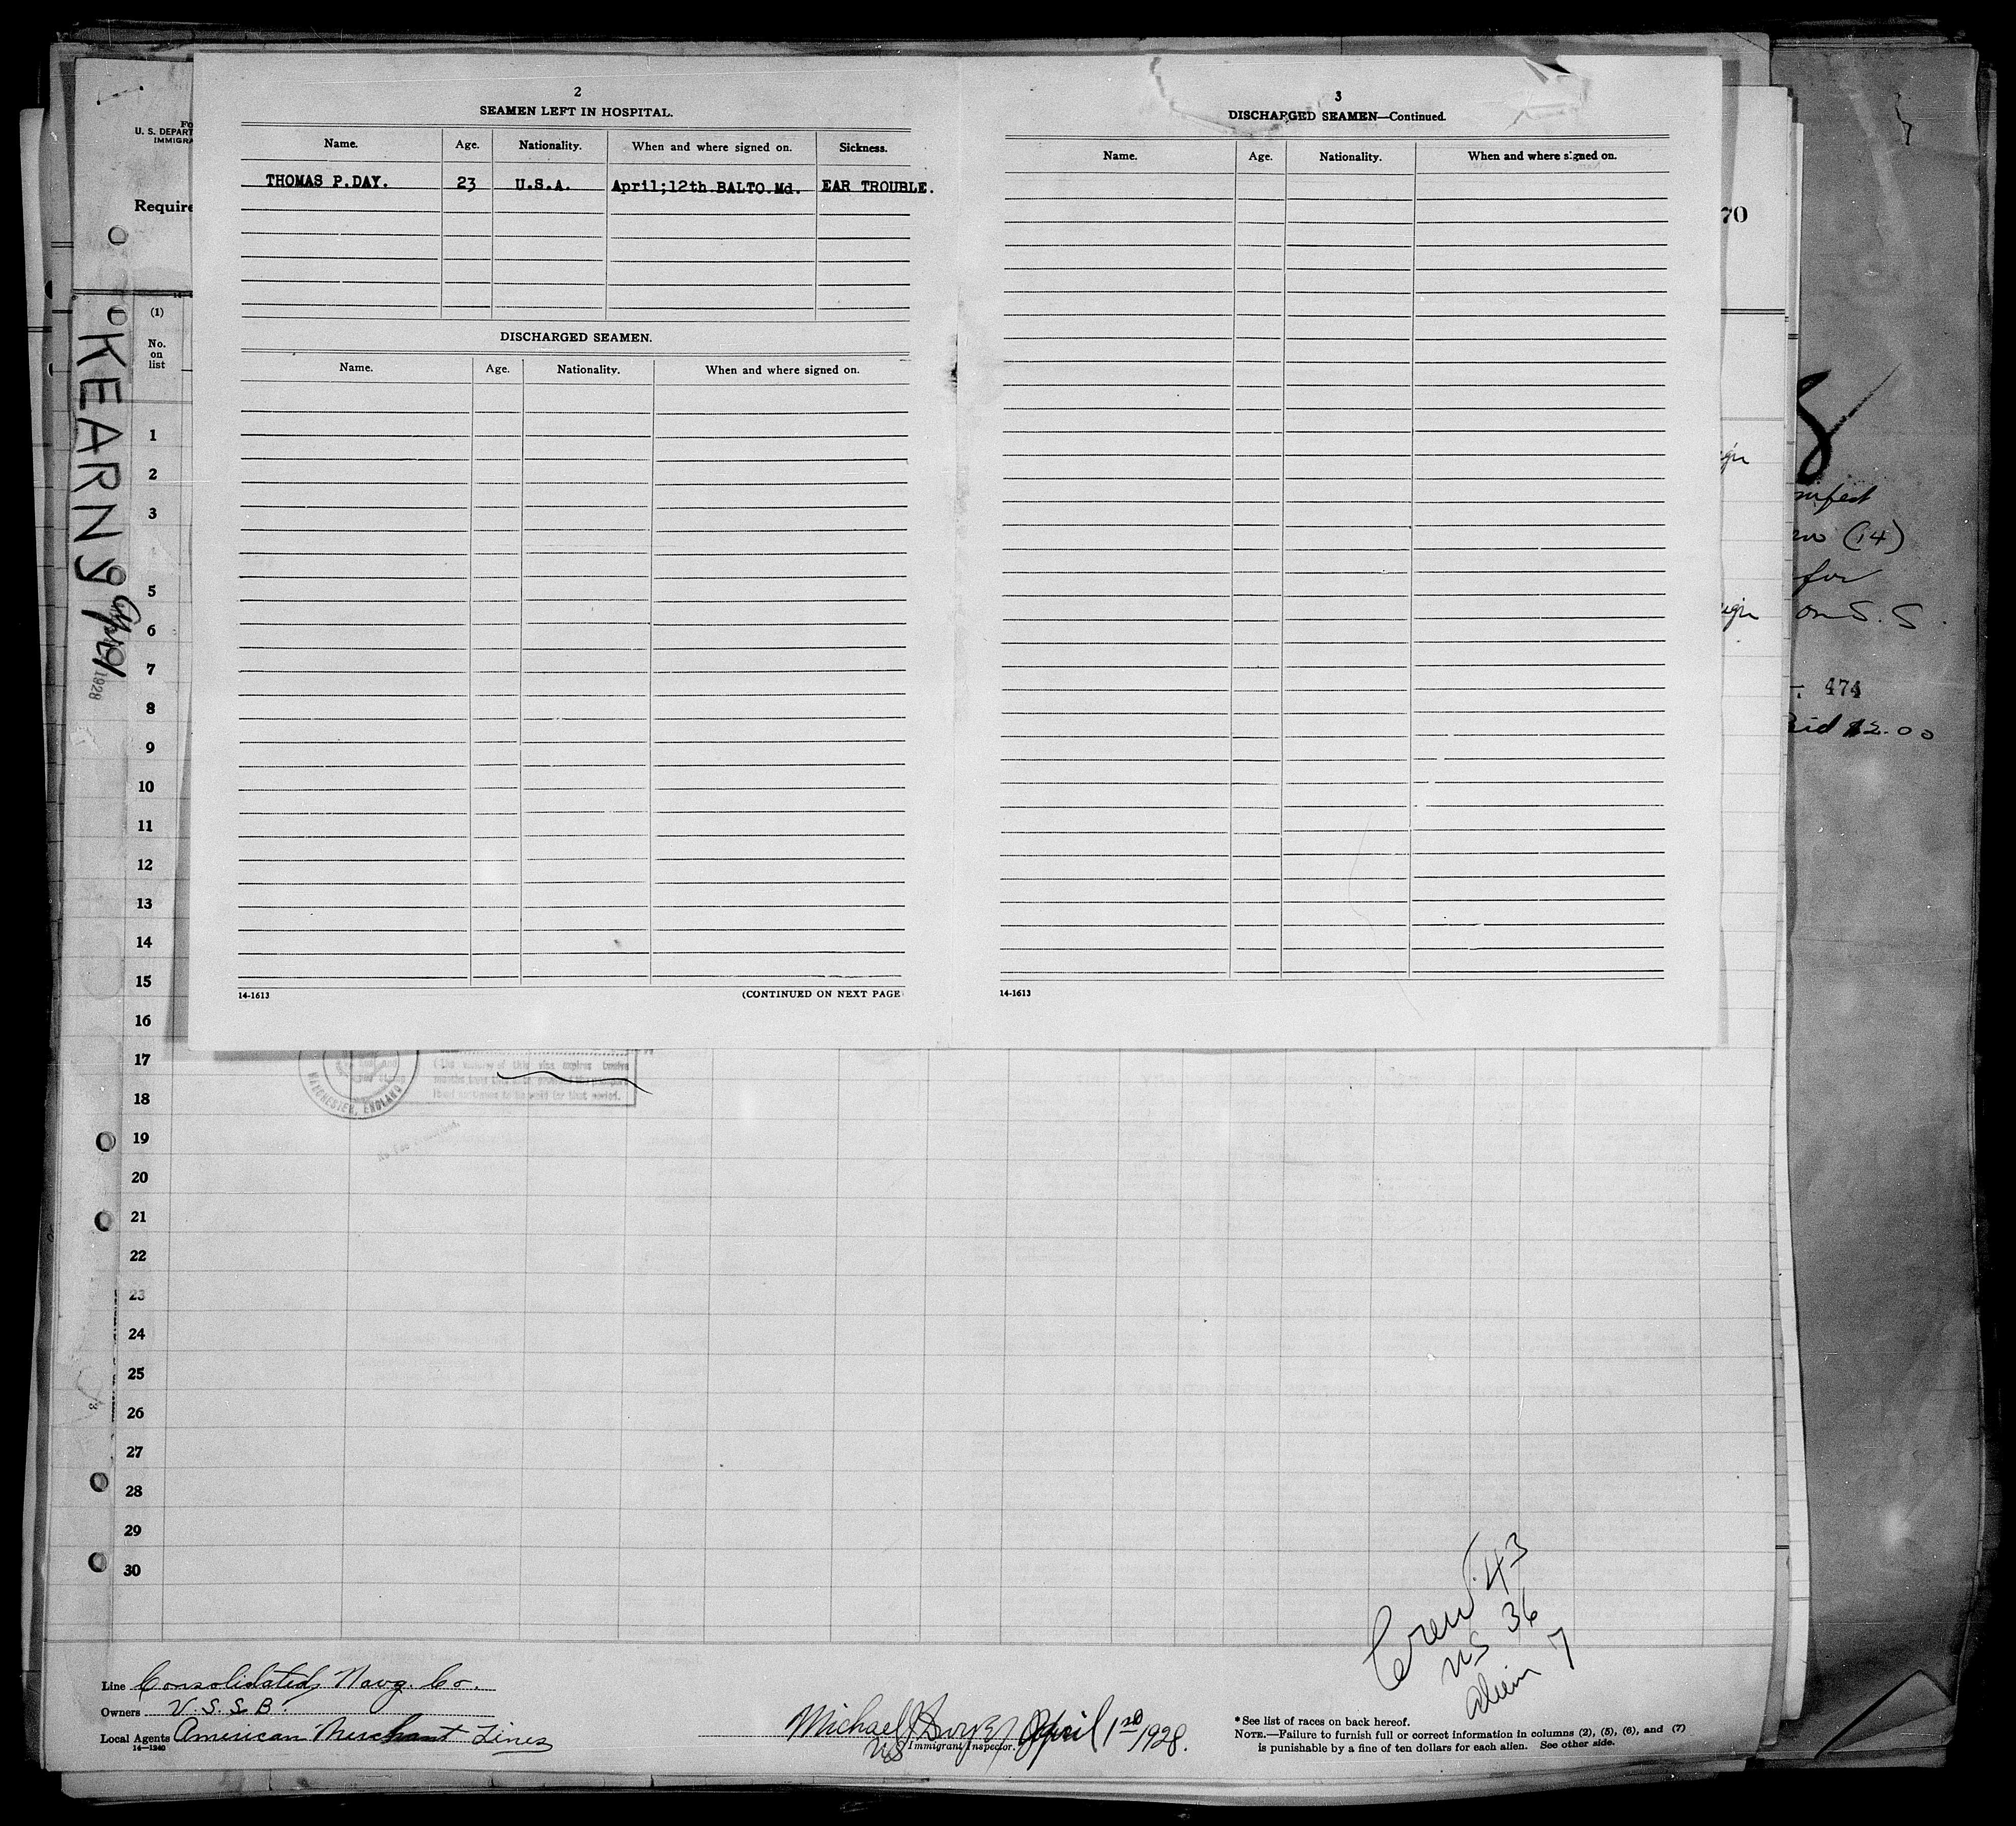 2
SEAMEN LEFT IN HOSPITAL.
Name. Age. Nationality. When and where signed on. Sickness.
THOMAS P.DAY. 23 U.S.A. April;12th.BALTO.Md. EAR TROUBLE.
DISCHARGED SEAMEN.
Name. Age. Nationality. When and where signed on.
14-1613 (CONTINUED ON NEXT PAGE
3
DISCHARGED SEAMEN—Continued.
Name. Age. Nationality. When and where signed on.
14-1613
U. S. DEPART
IMMIGRA
Require
(1)
No.
on
list
KEARNy
April
1928
1
2
3
5
6
7
8
9
10
11
12
13
14
15
16
17
18
19
20
21
22
23
24
25
26
27
28
29
30
70
(14)
for
on S. S.
474
$2.00
MANCHESTER, ENGLAND
Crew 43
US 36
alien 7
Line Consolidated Navg. Co.
Owners U.S.S.B.
Local Agents American Merchant Lines
14-1240
Michael
US Immigrant Inspector.
April 1928.
* See list of races on back hereof.
NOTE.—Failure to furnish full or correct information in columns (2), (5), (6), and (7)
is punishable by a fine of ten dollars for each alien. See other side.